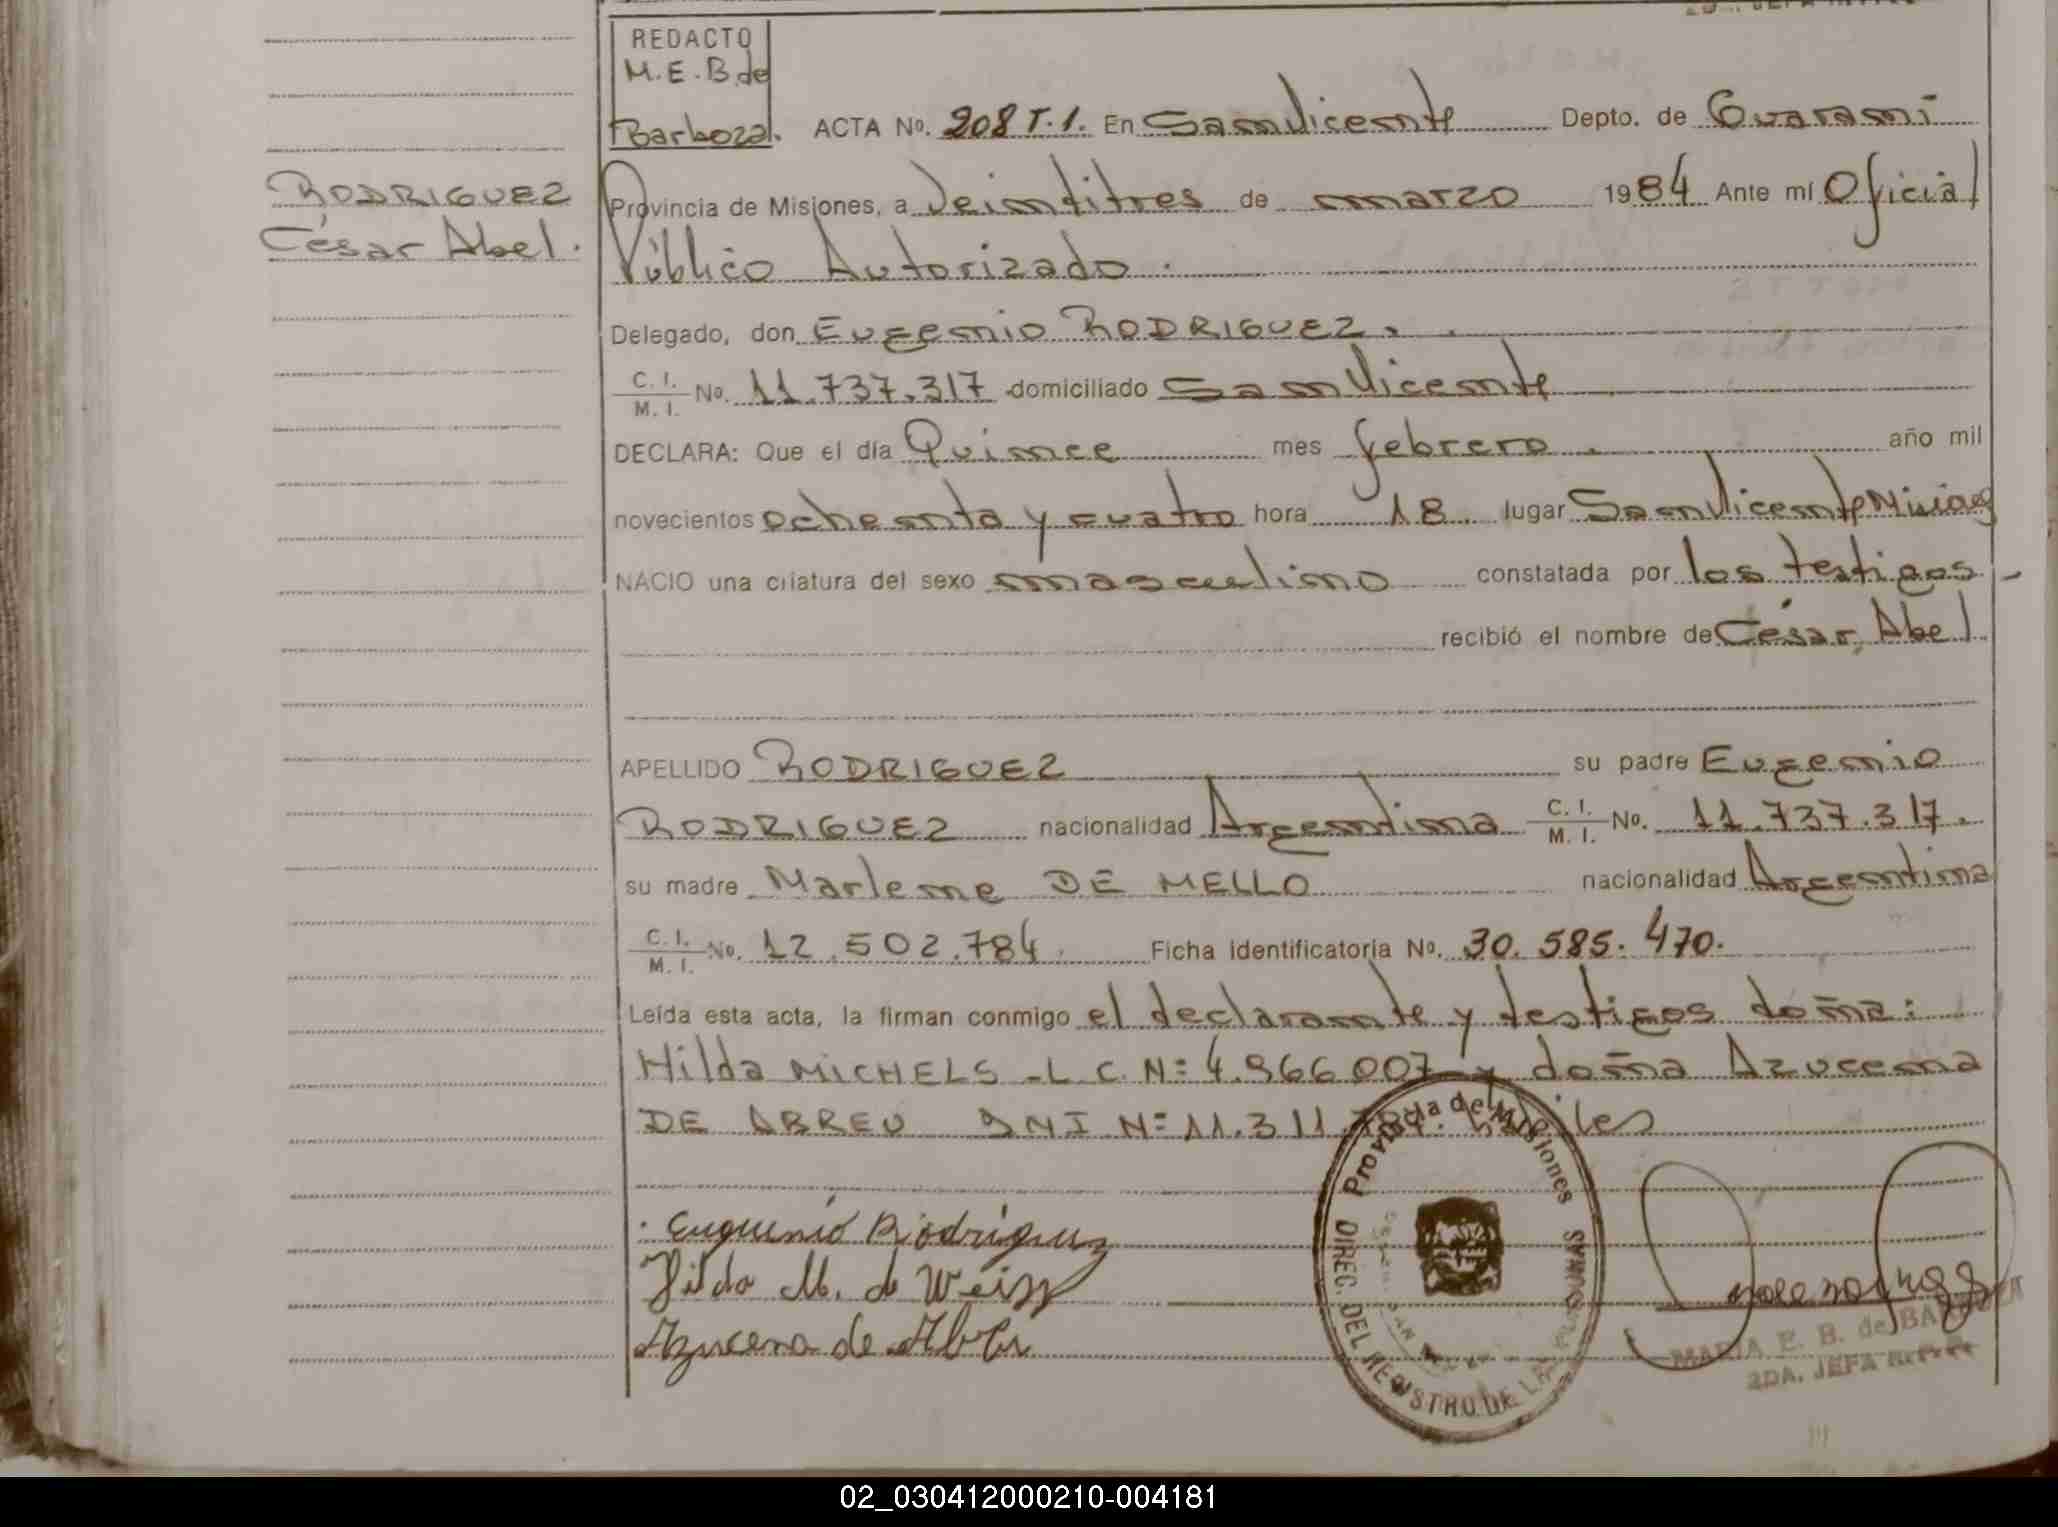 REDACTO
M.E.B. de
Barboza.
ACTA No. 208 T.1. En San Vicente Depto. de Guaraní
RODRIGUEZ
César Abel.
Provincia de Misiones, a Veintitres de marzo 1984 Ante mí Oficial
Público Autorizado.
Delegado, don Eugenio RODRIGUEZ.
C. I. / M. I. No. 11.737.317 domiciliado San Vicente
DECLARA: Que el día Quince mes febrero año mil
novecientos ochenta y cuatro hora 18 lugar San Vicente Misiones
NACIO una criatura del sexo masculino constatada por los testigos -
recibió el nombre de César Abel
APELLIDO RODRIGUEZ su padre Eugenio
RODRIGUEZ nacionalidad Argentina C. I. / M. I. No. 11.737.317.
su madre Marlene DE MELLO nacionalidad Argentina
C. I. / M. I. No. 12.502.784 Ficha identificatoria No. 30.585.470.
Leída esta acta, la firman conmigo el declarante y testigos doña:
Hilda MICHELS - L C. N= 4.966.007 y doña Azucena
DE ABREU DNI N= 11.311
Provincia de Misiones
DIREC. DEL REGISTRO DE LAS PERSONAS
Eugenio Rodriguez
Hilda M. de Weiss
Azucena de Abreu
MARIA E. B. de BARBOZA
2DA. JEFA
02_030412000210-004181